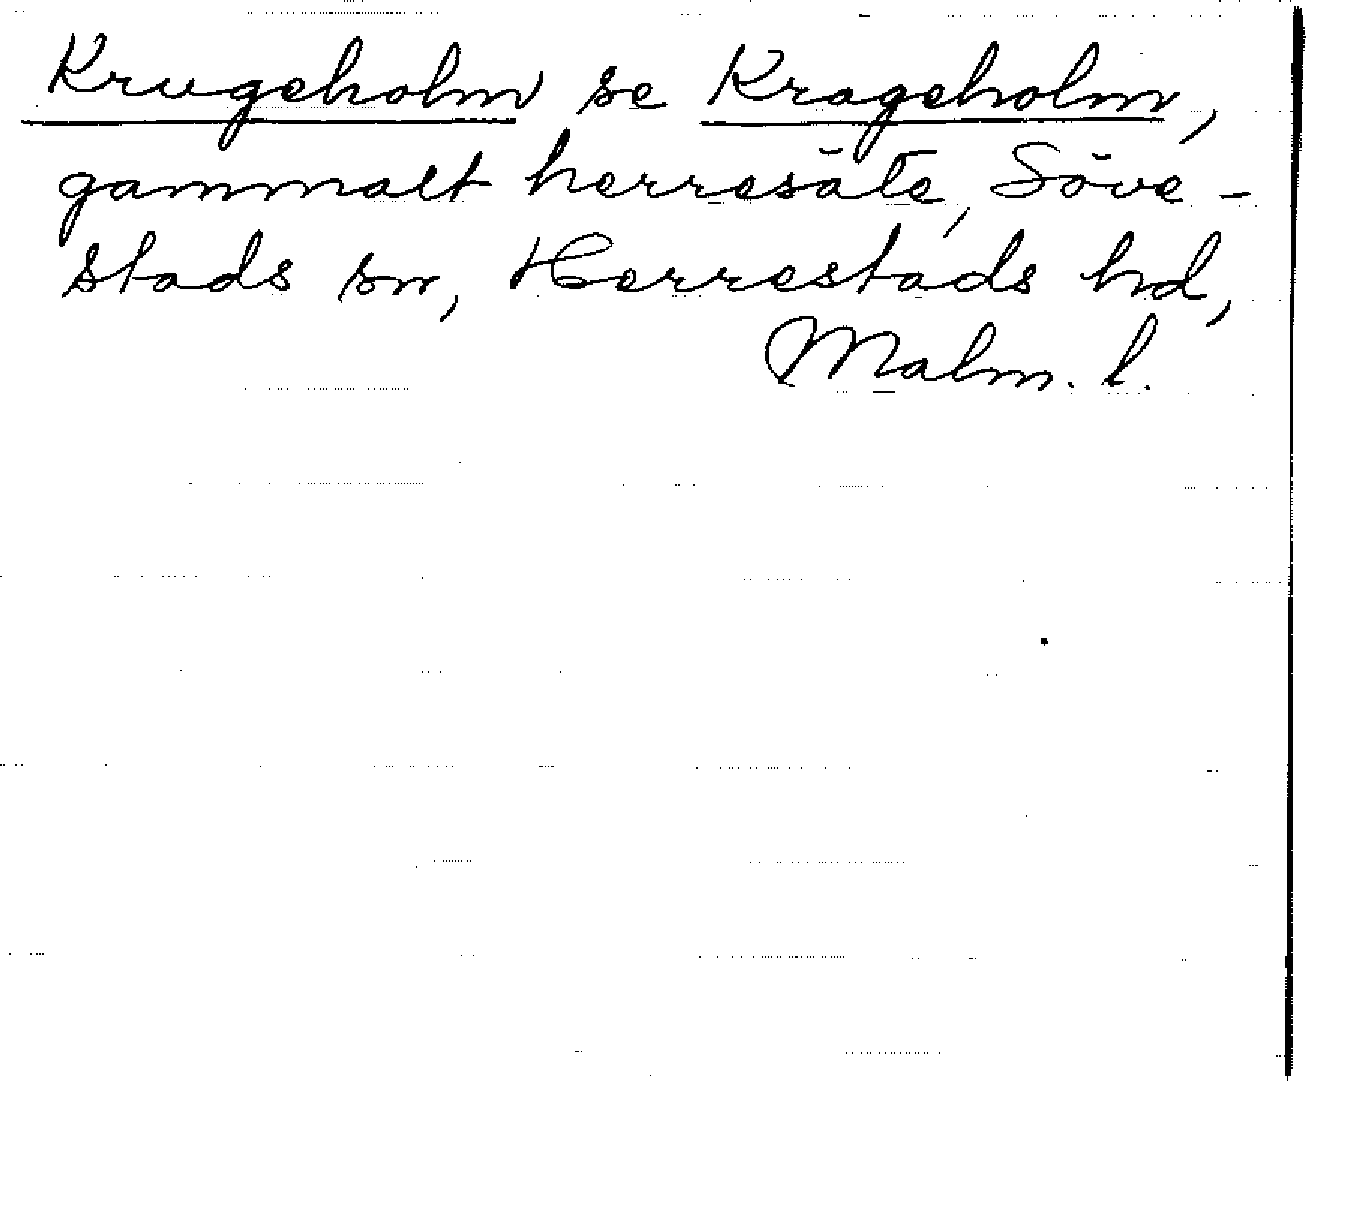 Krugeholm se Krageholm,
gammalt herresäte, Söve-
stads sn, Herrestads hd,
Malm. l.